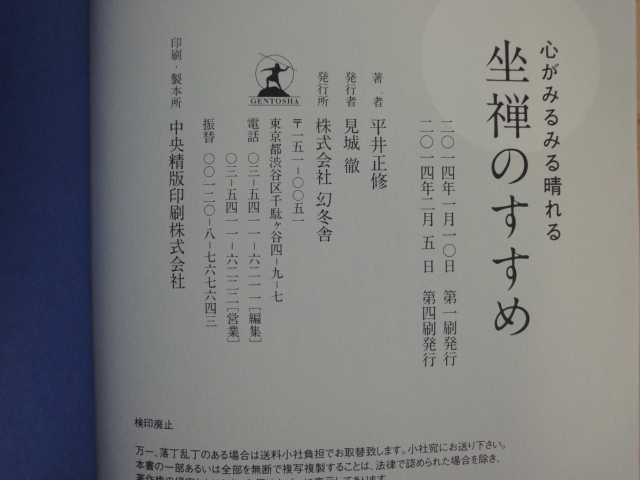 心がみるみる晴れる
坐禅のすすめ
二〇一四年一月一〇日　第一刷発行
二〇一四年二月　五　日　第四刷発行
著　者　平井正修
発行者　見城　徹
発行所　株式会社 幻冬舎
〒一五一-〇〇五一
東京都渋谷区千駄ヶ谷四-九-七
電話　〇三-五四一一-六二一一［編集］
〇三-五四一一-六二二二［営業］
振替　〇〇一二〇-八-七六七六四三
印刷・製本所　中央精版印刷株式会社
GENTOSHA
検印廃止
万一、落丁乱丁のある場合は送料小社負担でお取替致します。小社宛にお送り下さい。
本書の一部あるいは全部を無断で複写複製することは、法律で認められた場合を除き、